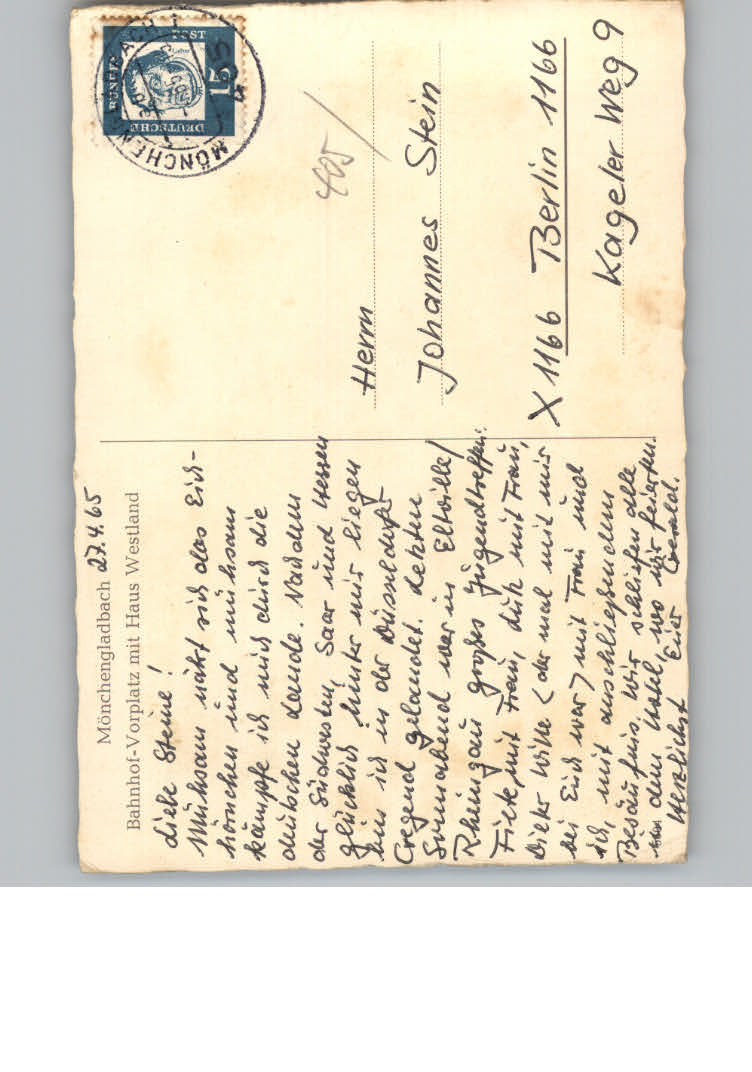 Mönchengladbach 27.4.65
Bahnhof-Vorplatz mit Haus Westland
Liebe Steine!
Mühsam nährt sich das Eich-
hörnchen und mühsam
kämpfe ich mich durch die
deutschen Lande. Nachdem
der Südwesten, Saar und Hessen
glücklich hinter mir liegen
bin ich in der Düsseldorfer
Gegend gelandet. Letzten
Sonnabend war in Eltville/
Rheingau großes Jugendtreffen:
mit Frau, mit Frau,
Dieter Witte (der mal mit mir
bei Euch war) mit Frau und
ich, mit anschließendem
Besäufnis. Wir schliefen alle
in dem Hotel, wo wir feierten.
Herzlichst Euer
DEUTSCHE
BUNDESPOST
15
MÖNCHENGLADBACH 1
405
405/
Herrn
Johannes Stein
X 1166 Berlin 1166
Kageler Weg 9